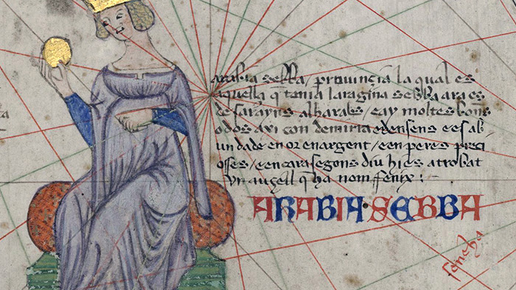 arabia sebba, prouinçia la qual es
aquella q̃ tenia laragina sebba, ara es
de sarayns alharabs, e ay moltes bones
odos axi con demirra edensens e es ab
undade en or enargent, e en peres preci
osses, e encara segons diu hi es atrobat
vn auçell q̃ ha nom fenix:
ARABIA·SEBBA